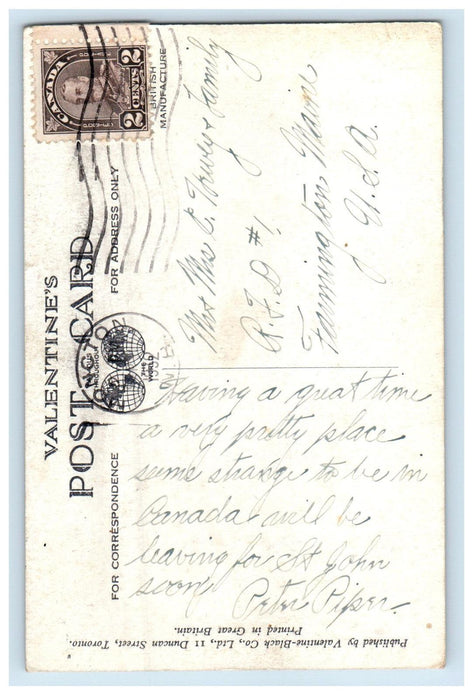 VALENTINE'S
POST CARD
FOR CORRESPONDENCE
FOR ADDRESS ONLY
BRITISH
MANUFACTURE
CANADA
2 CENTS 2
THE WORLD
1932
Having a great time
a very pretty place
seems strange to be in
Canada will be
leaving for St John
soon
Peter Piper
Mr & Mrs C. & Family
R.F.D #1
Farmington Maine
U.S.A.
Published by Valentine-Black Co., Ltd., 11 Duncan Street, Toronto.
Printed in Great Britain.